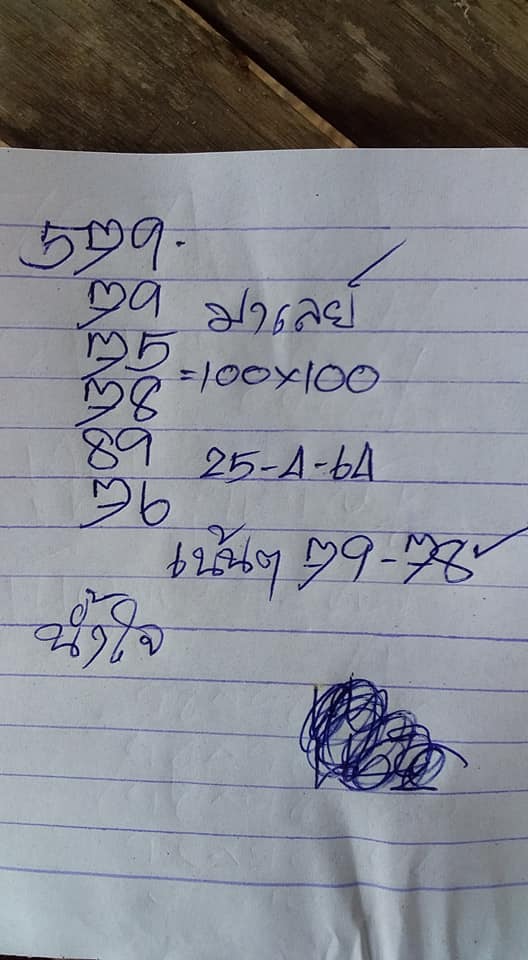 579.
79 มาเลย์
75
=100x100
78
89 25-4-64
76
เน้นๆ 79-78
น้ำใจ